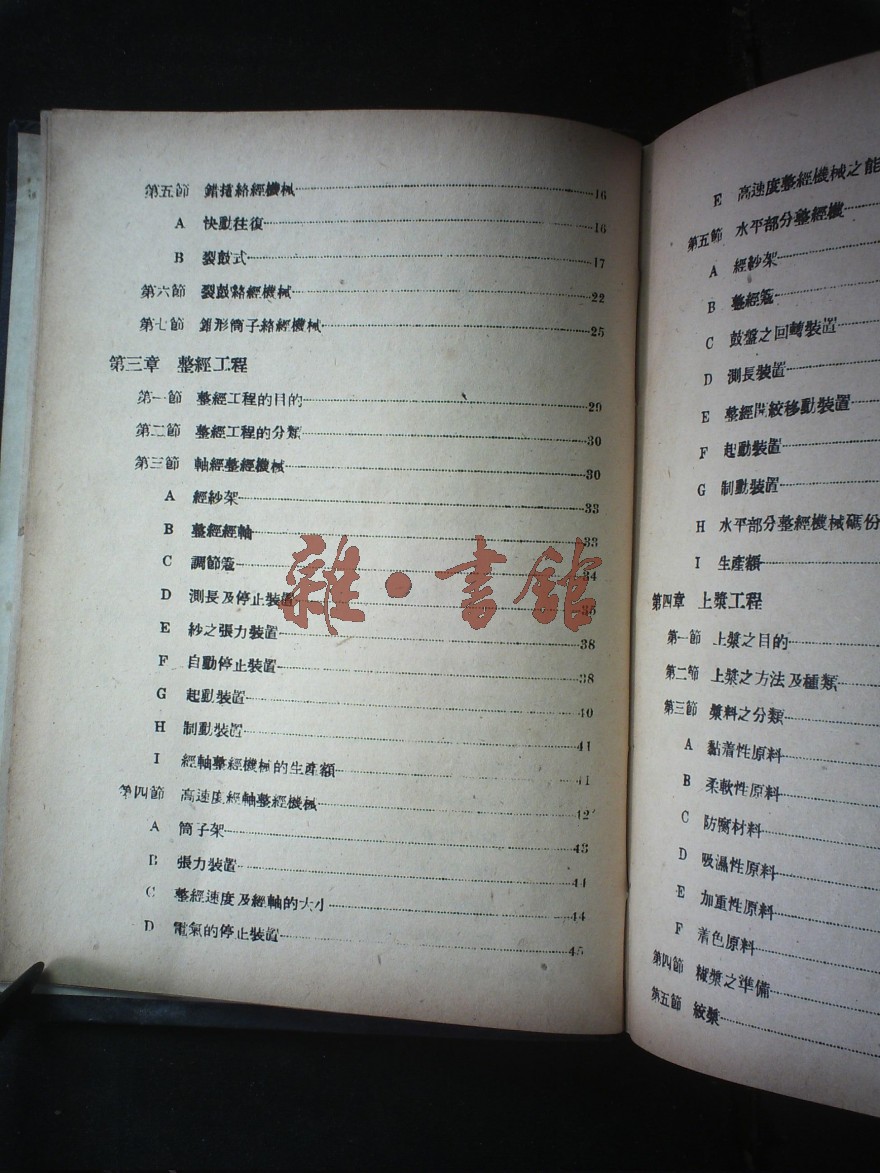 第五節 錐捲絡經機械 16
A 快動往復 16
B 裂鼓式 17
第六節 裂鼓絡經機械 22
第七節 錐形筒子絡經機械 25
第三章 整經工程
第一節 整經工程的目的 29
第二節 整經工程的分類 30
第三節 軸經整經機械 30
A 經紗架 33
B 整經經軸 33
C 調節筘 34
D 測長及停止裝置 35
E 紗之張力裝置 38
F 自動停止裝置 38
G 起動裝置 40
H 制動裝置 41
I 經軸整經機械的生產額 41
第四節 高速度經軸整經機械 42
A 筒子架 43
B 張力裝置 44
C 整經速度及經軸的大小 44
D 電氣的停止裝置 45
雜·書館
E 高速度整經機械之能
第五節 水平部分整經機
A 經紗架
B 整經筘
C 鼓盤之回轉裝置
D 測長裝置
E 整經開絞移動裝置
F 起動裝置
G 制動裝置
H 水平部分整經機械碼份
I 生產額
第四章 上漿工程
第一節 上漿之目的
第二節 上漿之方法及種類
第三節 漿料之分類
A 黏着性原料
B 柔軟性原料
C 防腐材料
D 吸濕性原料
E 加重性原料
F 着色原料
第四節 糊漿之準備
第五節 絞漿